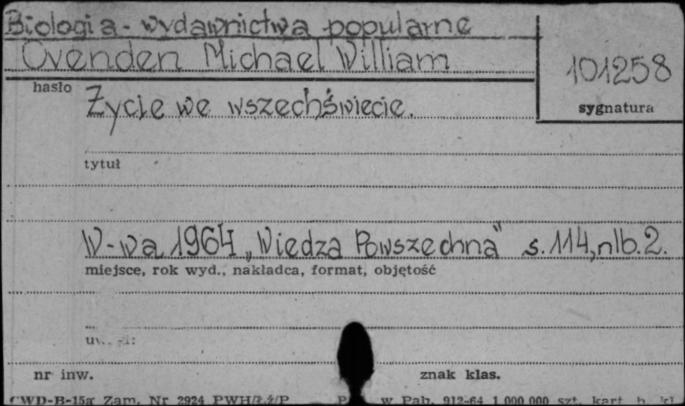 Biologia - wydawnictwa popularne
Ovenden Michael William
101258
hasło
Życie we wszechświecie.
sygnatura
tytuł
W-wa 1964 „Wiedza Powszechna" s. 114, nlb. 2.
miejsce, rok wyd., nakładca, format, objętość
nr inw.
znak klas.
CWD-B-15a Zam. Nr 2924 PWH/Ł.ż/P w. Pab. 912-64 1 000 000 szt. kart. b. kl.